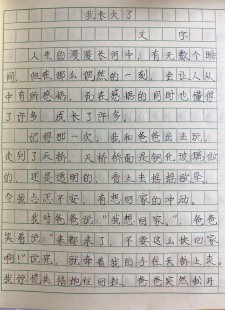 我长大了
文 字
人生的漫漫长河中，有无数个瞬
间，但在那么偶然的一刻，会让人从
中有所感悟，而在感悟的同时也懂得
了许多，成长了许多。
记得那一次，我和爸爸出去玩，
走到了天桥，天桥桥面是钢化玻璃做
的，还是透明的，看上去摇摇欲坠，
令我忐忑不安，有想回家的冲动。
我对爸爸说："我想回家。"爸爸
笑着说："来都来了，不要这么快回家
啊！"说完，就带着我的手在天桥上走。
我惊慌失措地往回拉，爸爸突然松开